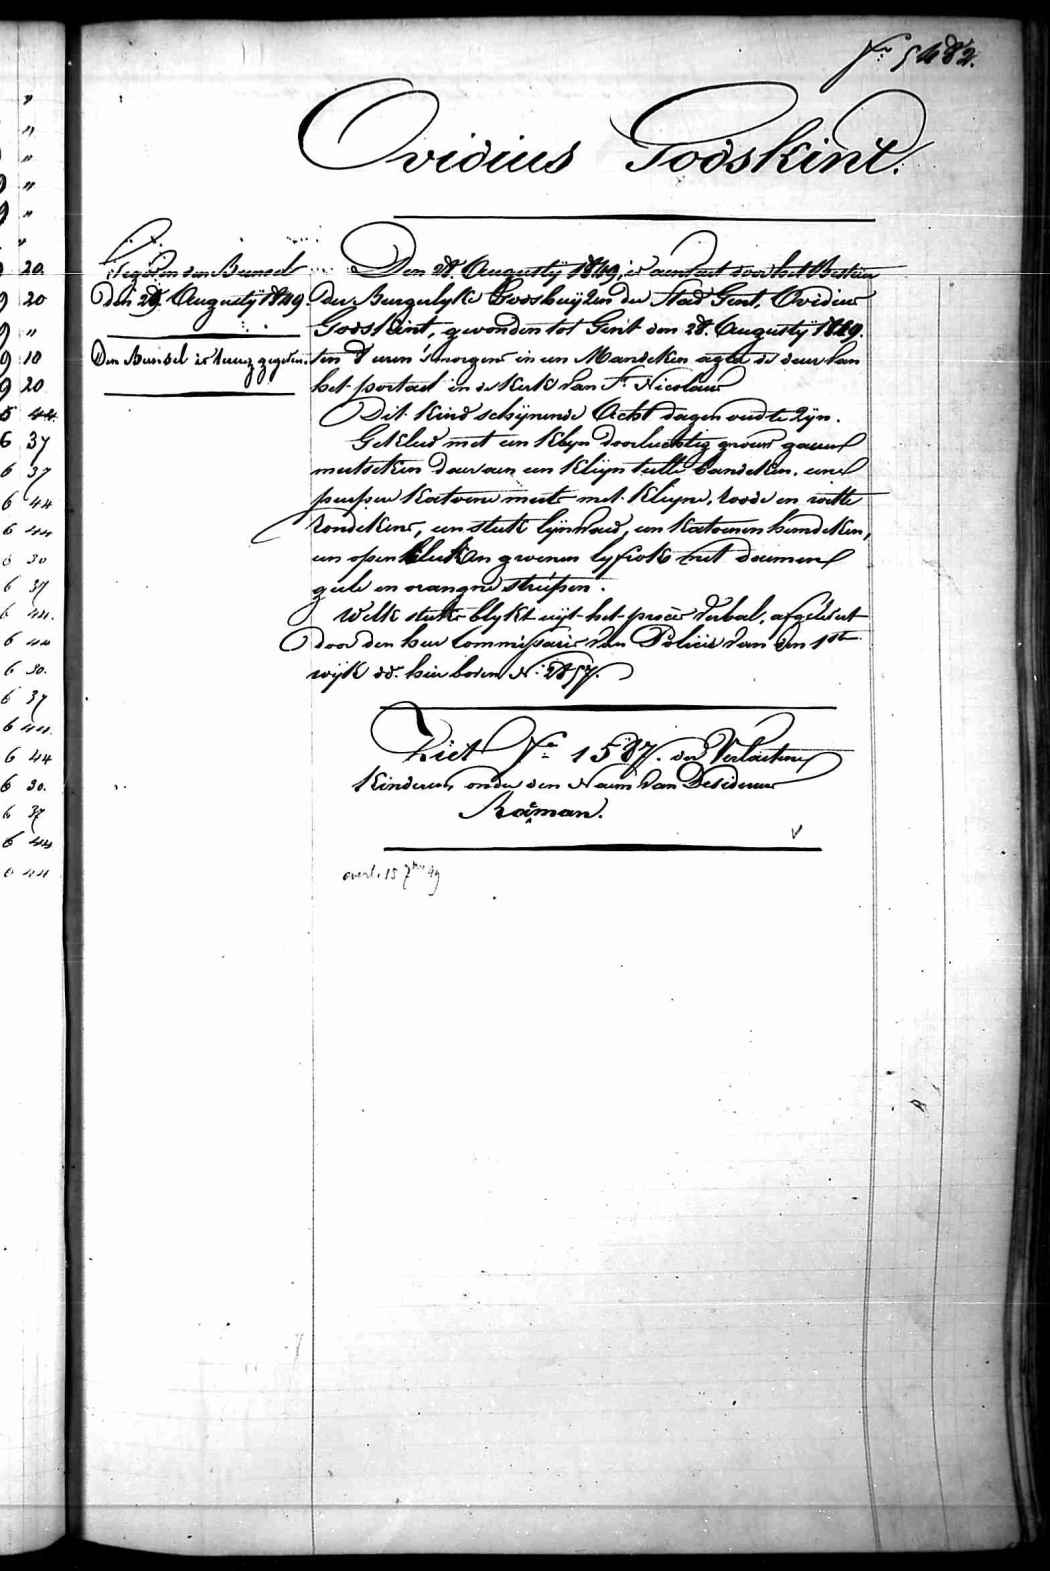 Nr 5482.
Ovidius Godskint.
Gegeven den Bunsel
den 28 Augusty 1849.
Den Bunsel is terug gegeven
Den 28. Augusty 1849, is aenveert door het Bestier
der Burgerlyke Godshuyzen der Stad Gent, Ovidius
Godskint, gevonden tot Gent den 28. Augusty 1849,
ten 8 uren 's morgens in een Mandeken agter de deur van
het portael in de Kerk van St. Nicolaus
Dit kind schynende Acht dagen oud te zyn.
Gekleed met een klyn doorluchtig groen gauze
mutseken daer aen een klyn tulle bandeken, eene
purper katoene muts met klyne, roode en witte
rondekens, een stuk lynwaed, een katoenen hemdeken,
een open groenen lyfrok met
geele en orangne striepen.
Welk stuk blykt uyt het procès verbal, afgelevert
door den heer Commissaris van Policie van den 1ste
wyk dd. hier boven N. 2857.
Ziet Nr 1587. der Verlaetene
Kinderen, onder den Naem van Desiderius
Raman.
overl. 15 7bre 49
20
20
"
10
20
5 44
6 37
6 37
6 44
6 44
6 30
6 37
6 44
6 44
6 30.
6 37
6 44
6 44
6 30.
6 37
6 44
6 44